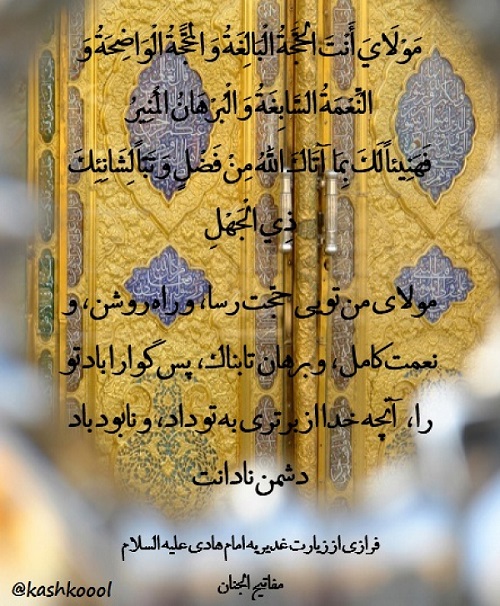 مَوْلَايَ أَنْتَ الْحُجَّةُ الْبَالِغَةُ وَ الْمَحَجَّةُ الْوَاضِحَةُ وَ
النِّعْمَةُ السَّابِغَةُ وَ الْبُرْهَانُ الْمُنِيرُ
فَهَنِيئاً لَكَ بِمَا آتَاكَ اللَّهُ مِنْ فَضْلٍ وَ تَبّاً لِشَانِئِكَ
ذِي الْجَهْلِ
مولای من تویی حجّت رسا، و راه روشن، و
نعمت کامل، و برهان تابناک، پس گوارا باد تو
را، آنچه خدا از برتری به تو داد، و نابود باد
دشمن نادانت
فرازی از زیارت غدیریه امام هادی علیه السلام
مفاتیح الجنان
@kashkoool